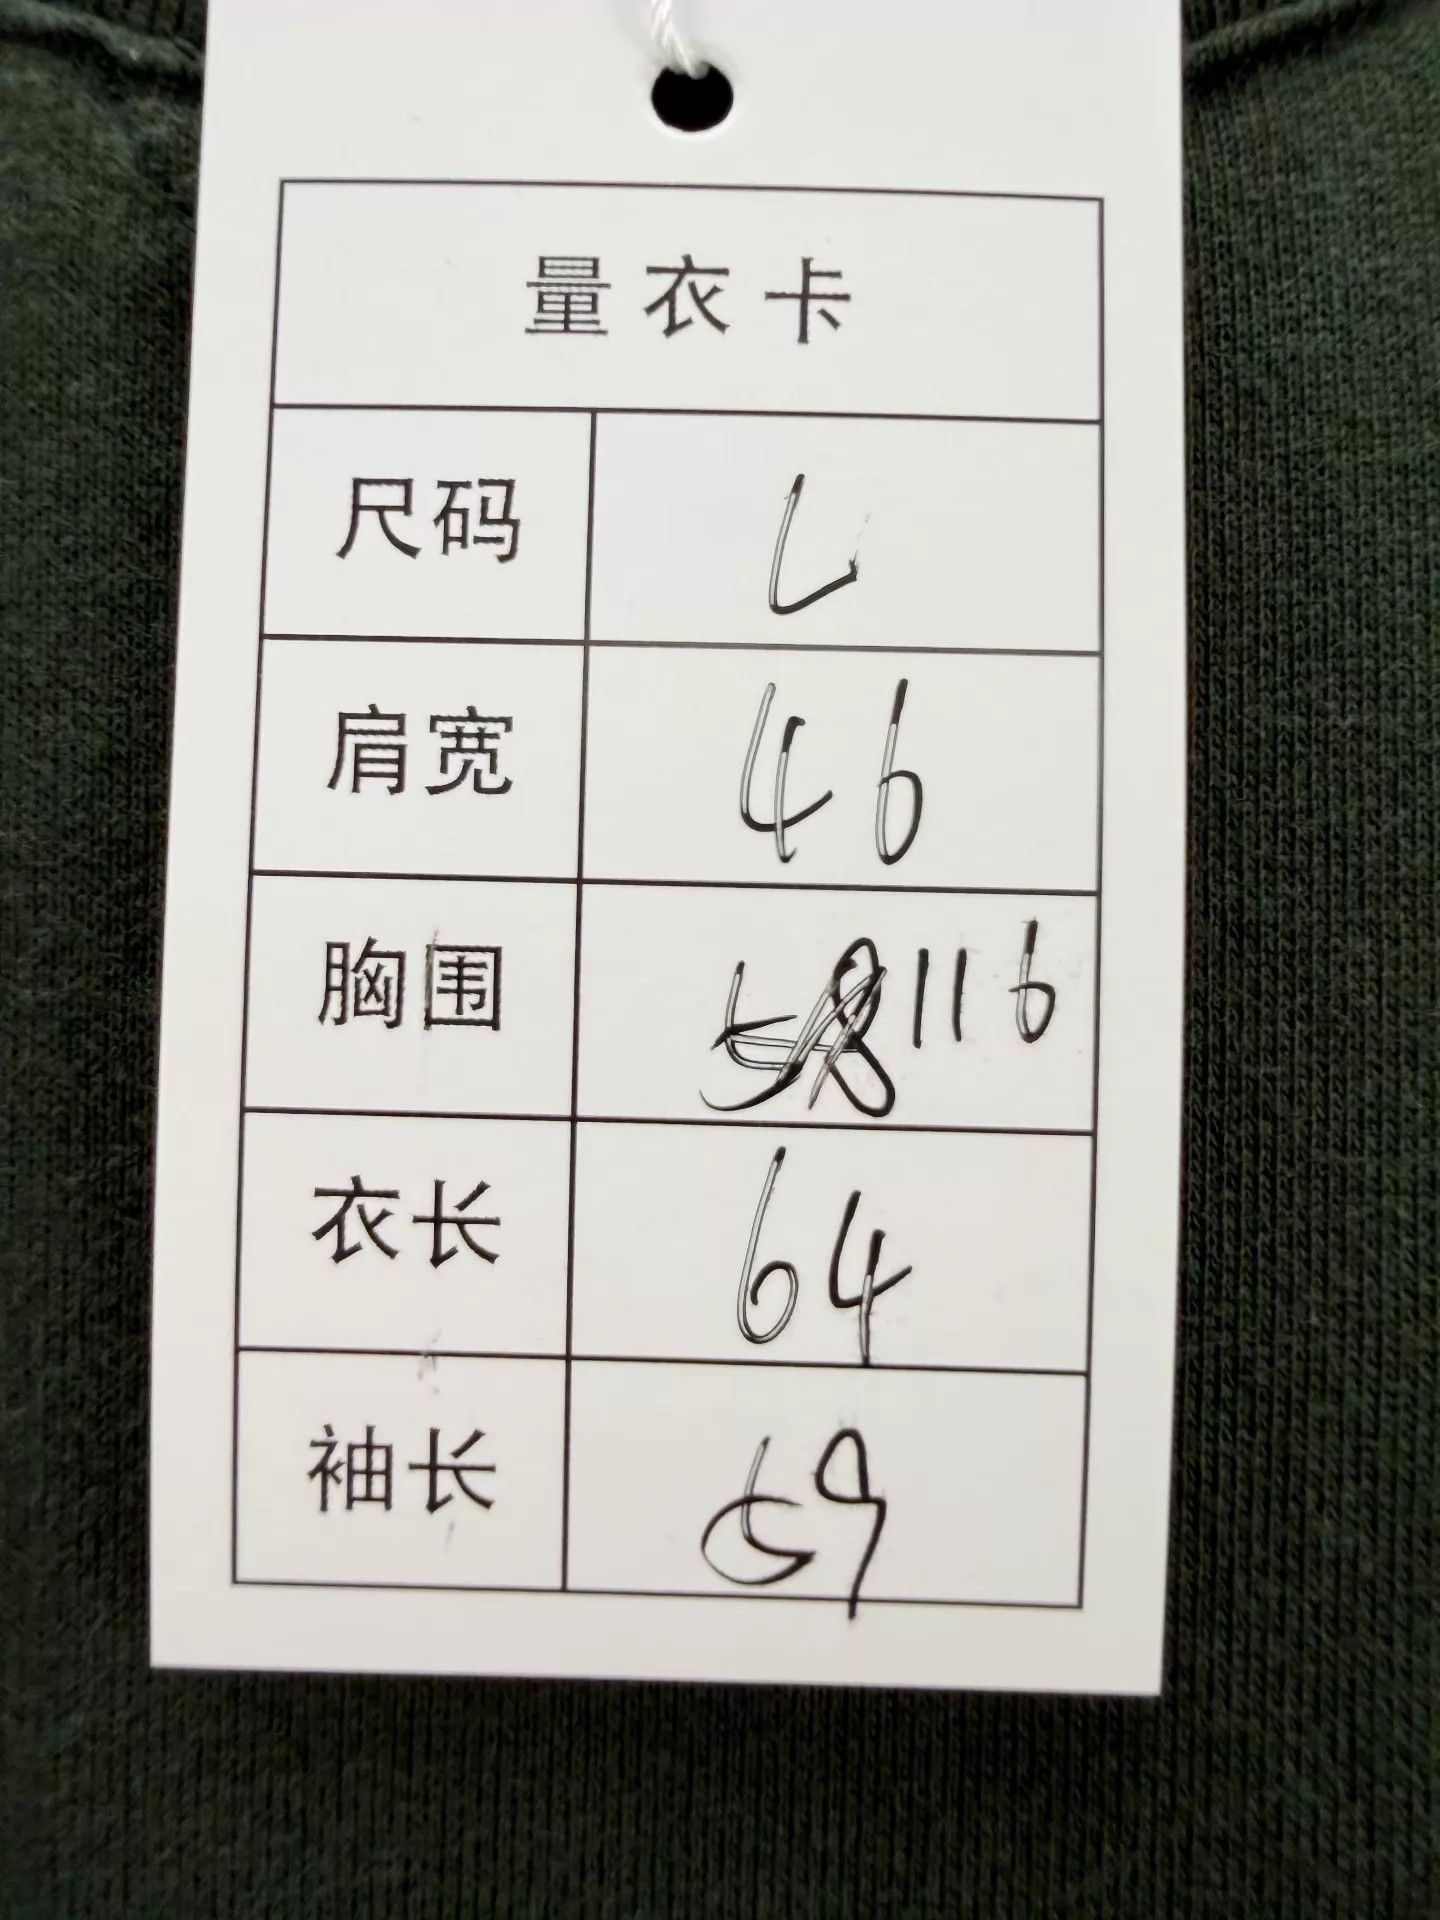 量衣卡
尺码 L
肩宽 46
胸围 58 116
衣长 64
袖长 59